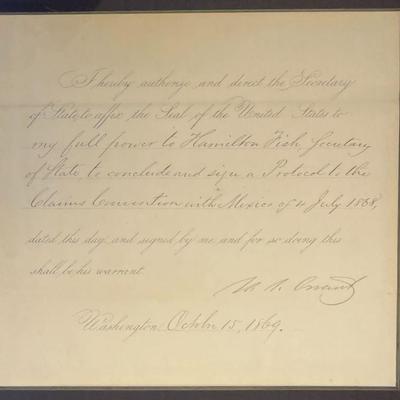 I hereby authorize and direct the Secretary
of State to affix the Seal of the United States to
my full power to Hamilton Fish, Secretary
of State, to conclude and sign a Protocol to the
Claims Convention with Mexico of 4 July 1868,
dated this day, and signed by me, and for so doing this
shall be his warrant.
U. S. Grant
Washington, October 15, 1869.